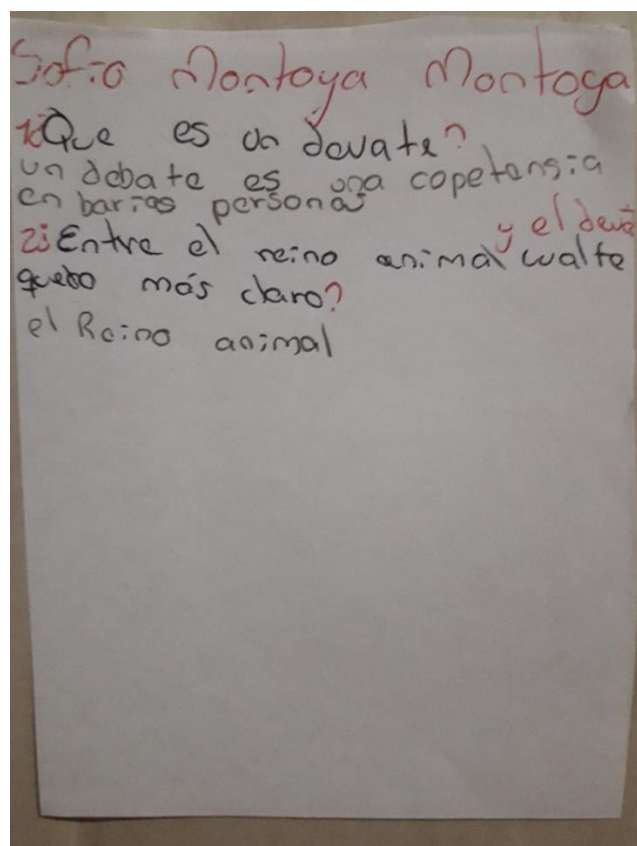 Sofia Montoya Montoya
1¿Que es un devate?
un debate es una copetensia
en barias personas
y el deva
2¿Entre el reino animal walte
quedo más claro?
el Reino animal